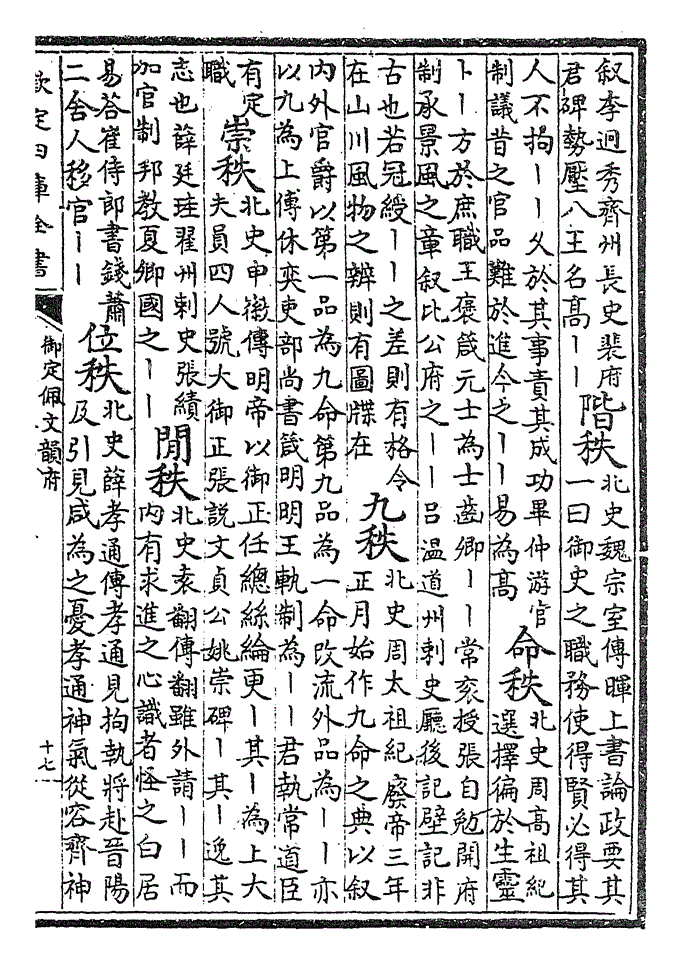 叙李迥秀齊州長史裴府
君碑勢壓八王名髙丨丨
階秩
北史魏宗室傳暉上書論政要其
一曰御史之職務使得賢必得其
人不拘丨丨久於其事責其成功畢仲游官
制議昔之官品難於進今之丨丨易為髙
命秩
北史周高祖紀
選擇徧於生靈
卜丨方於庶職王褒箴元士為士齒卿丨丨常衮授張自勉開府
制承景風之章叙比公府之丨丨吕温道州刺史廳後記壁記非
古也若冠綬丨丨之差則有格令
在山川風物之辨則有圖牒在
九秩
北史周太祖紀廢帝三年
正月始作九命之典以叙
内外官爵以第一品為九命第九品為一命改流外品為丨丨亦
以九為上傅休奕吏部尚書箴明明王執制為丨丨君執常道臣
有定
職
崇秩
北史申徽傳明帝以御正任總絲綸更丨其丨為上大
夫員四人號大御正張説文貞公姚崇碑丨其丨逸其
志也薛廷珪翟州刺史張績
加官制邦教夏卿國之丨丨
閒秩
北史袁翻傳翻雖外請丨丨而
内有求進之心識者怪之白居
易荅崔侍郎書錢蕭
二舍人移官丨丨
位秩
北史薛孝通傳孝通見拘執將赴晉陽
及引見咸為之憂孝通神氣從容齊神
欽定四庫全書
御定佩文韻府
十七